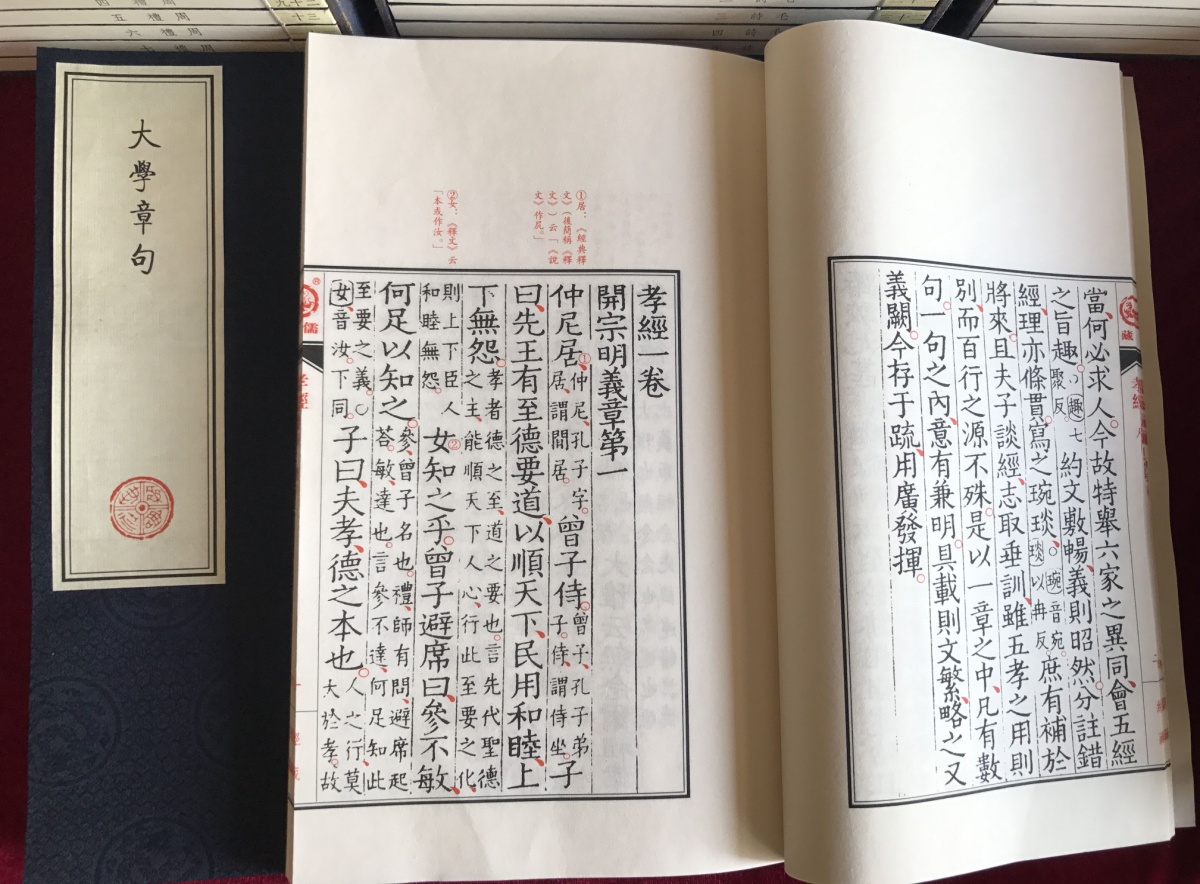 當、何必求人。今故特舉六家之異同、會五經
之旨趣。○趣七聚反。約文敷暢、義則昭然。分註錯
經、理亦條貫。寫之琬琰。琬音宛。琰以冉反。庶有補於
將來。且夫子談經、志取垂訓。雖五孝之用則
別、而百行之源不殊。是以一章之中、凡有數
句。一句之內、意有兼明。具載則文繁、略之又
義闕。今存于疏、用廣發揮。
藏
孝經
①居：《經典釋
文》（後簡稱《釋
文》）云「《說
文》作凥。」
②女：《釋文》云
「本或作汝。」
孝經一卷
開宗明義章第一
仲尼居、①仲尼、孔子字。居、謂閒居。曾子侍。曾子、孔子弟子。侍、謂侍坐。子
曰、先王有至德要道、以順天下、民用和睦、上
下無怨。孝者德之至、道之要也。言先代聖德之主、能順天下人心、行此至要之化、
則上下臣人和睦無怨。女②知之乎。曾子避席曰、參不敏、
何足以知之。參、曾子名也。禮、師有問、避席起荅。敏、達也。言參不達、何足知此
至要之義。○女音汝。下同。子曰、夫孝、德之本也。人之行莫大於孝。故
儒
孝經
大學章句
周禮四
周禮五
周禮六
毛詩三
毛詩四